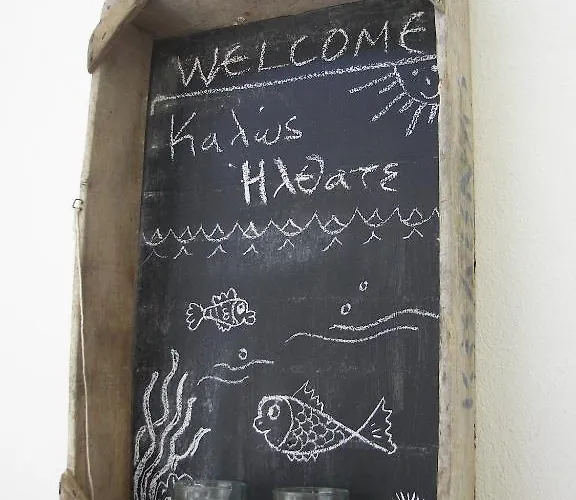 WELCOME
Καλώς
Ηλθατε